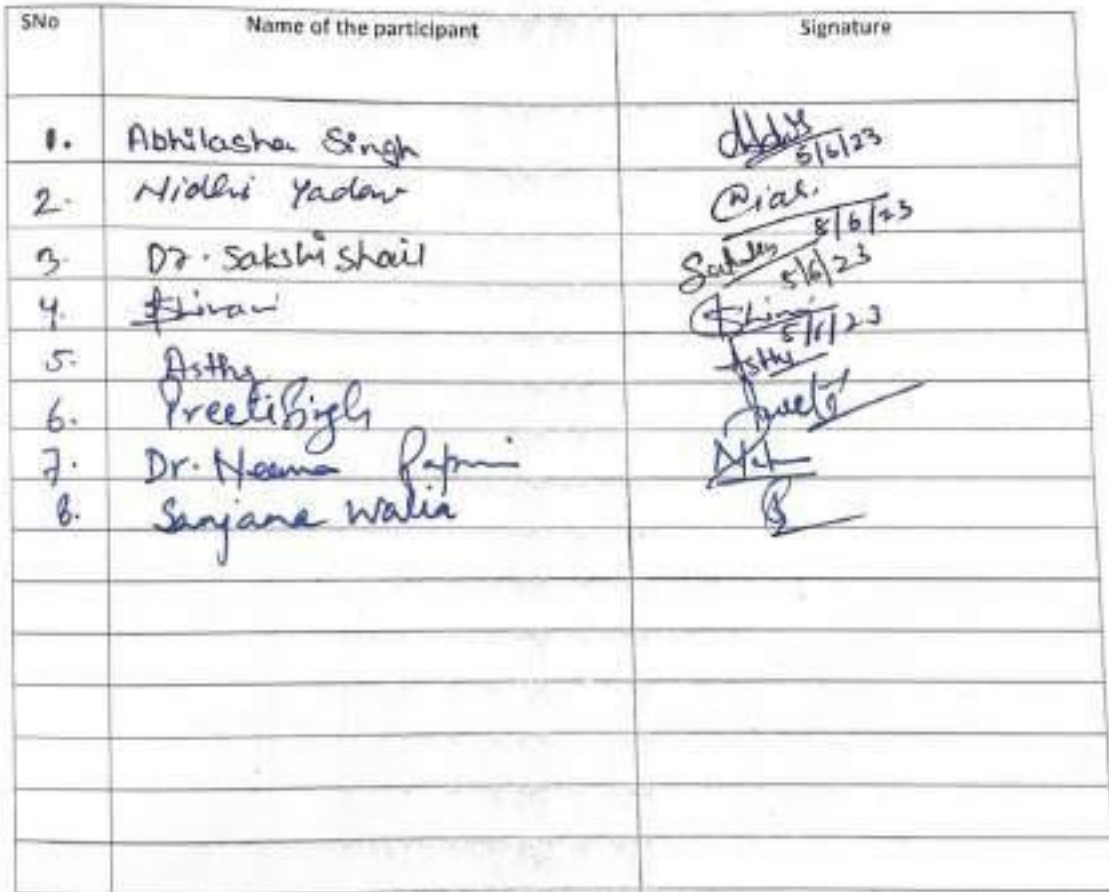 SNo Name of the participant Signature
1. Abhilasha Singh 5/6/23
2. Nidhi Yadav 5/6/23
3. Dr. Sakshi Shail 5/6/23
4. Shivani 5/6/23
5. Astha
6. Preeti Singh
7. Dr. Neema
8. Sanjana Walia